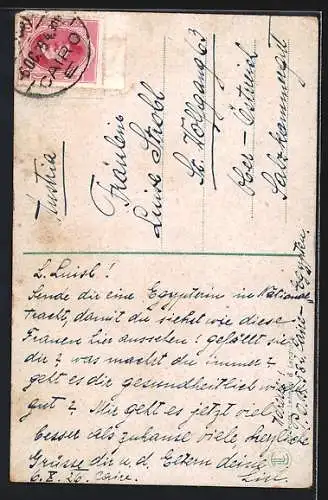 CAIRO
Austria
Fräulein
Luise Strobl
St. Wolfgang 63
Ober-Östereich
Salzkammergut
L. Luisl!
Sende dir eine Egypterin in National
tracht, damit du siehst wie diese
Frauen hier aussehen! gefällt sie
dir? was machst du immer?
geht es dir gesundheitlich
gut? Mir geht es jetzt viel
besser als zuhause viele herzliche
Grüsse dir u. d. Eltern deine
6. X. 26. Cairo.